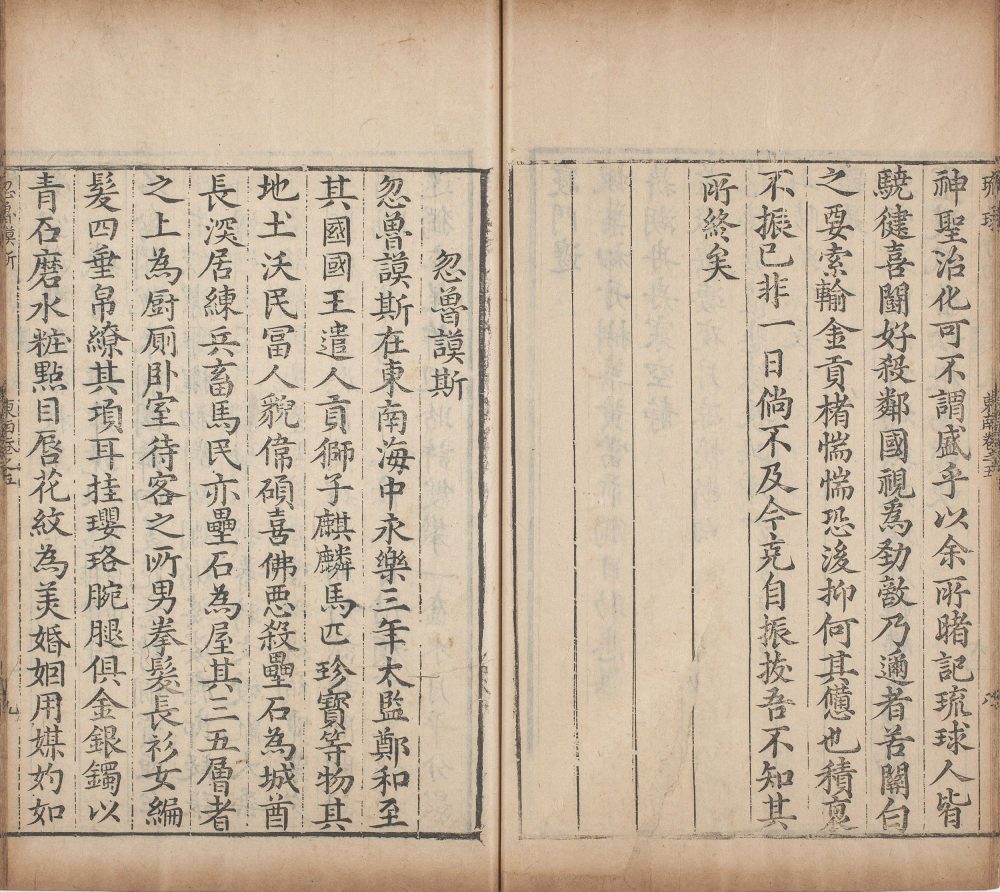 神聖治化可不謂盛乎以余所睹記琉球人皆
驍徤喜鬭好殺鄰國視爲勁敵乃邇者苦關白
之要索輸金貢楮惴惴恐後抑何其憊也積衰
不振已非一日倘不及今克自振拔吾不知其
所終矣
忽魯謨斯
忽魯謨斯在東南海中永樂三年太監鄭和至
其國國王遣人貢獅子麒麟馬匹珍寶等物其
地土沃民冨人貌偉碩喜佛惡殺壘石為城酋
長深居練兵畜馬民亦壘石為屋其三五層者
之上為厨厠卧室待客之所男拳髮長衫女編
髮四垂帛繚其項耳挂瓔珞腕腿俱金銀鐲以
青石磨水粧㸃目唇花紋為美婚姻用媒妁如